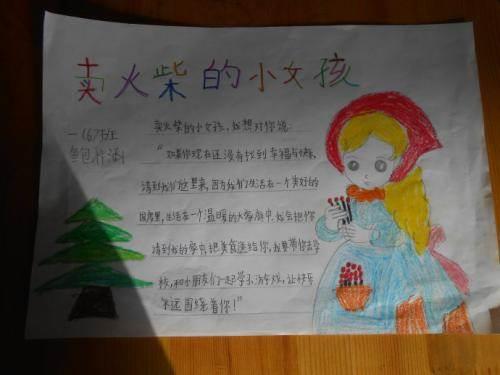 卖火柴的小女孩
一(6)班
卖火柴的小女孩,我想对你说:
“如果你现在还没有找到幸福与快乐,
请到我们这里来,因为我们生活在一个美好的
国度里,生活在一个温暖的大家庭中.我会把你
请到我的家中,把美食送给你,我要带你去学
校,和小朋友们一起学习、游戏,让快乐
永远围绕着你!”